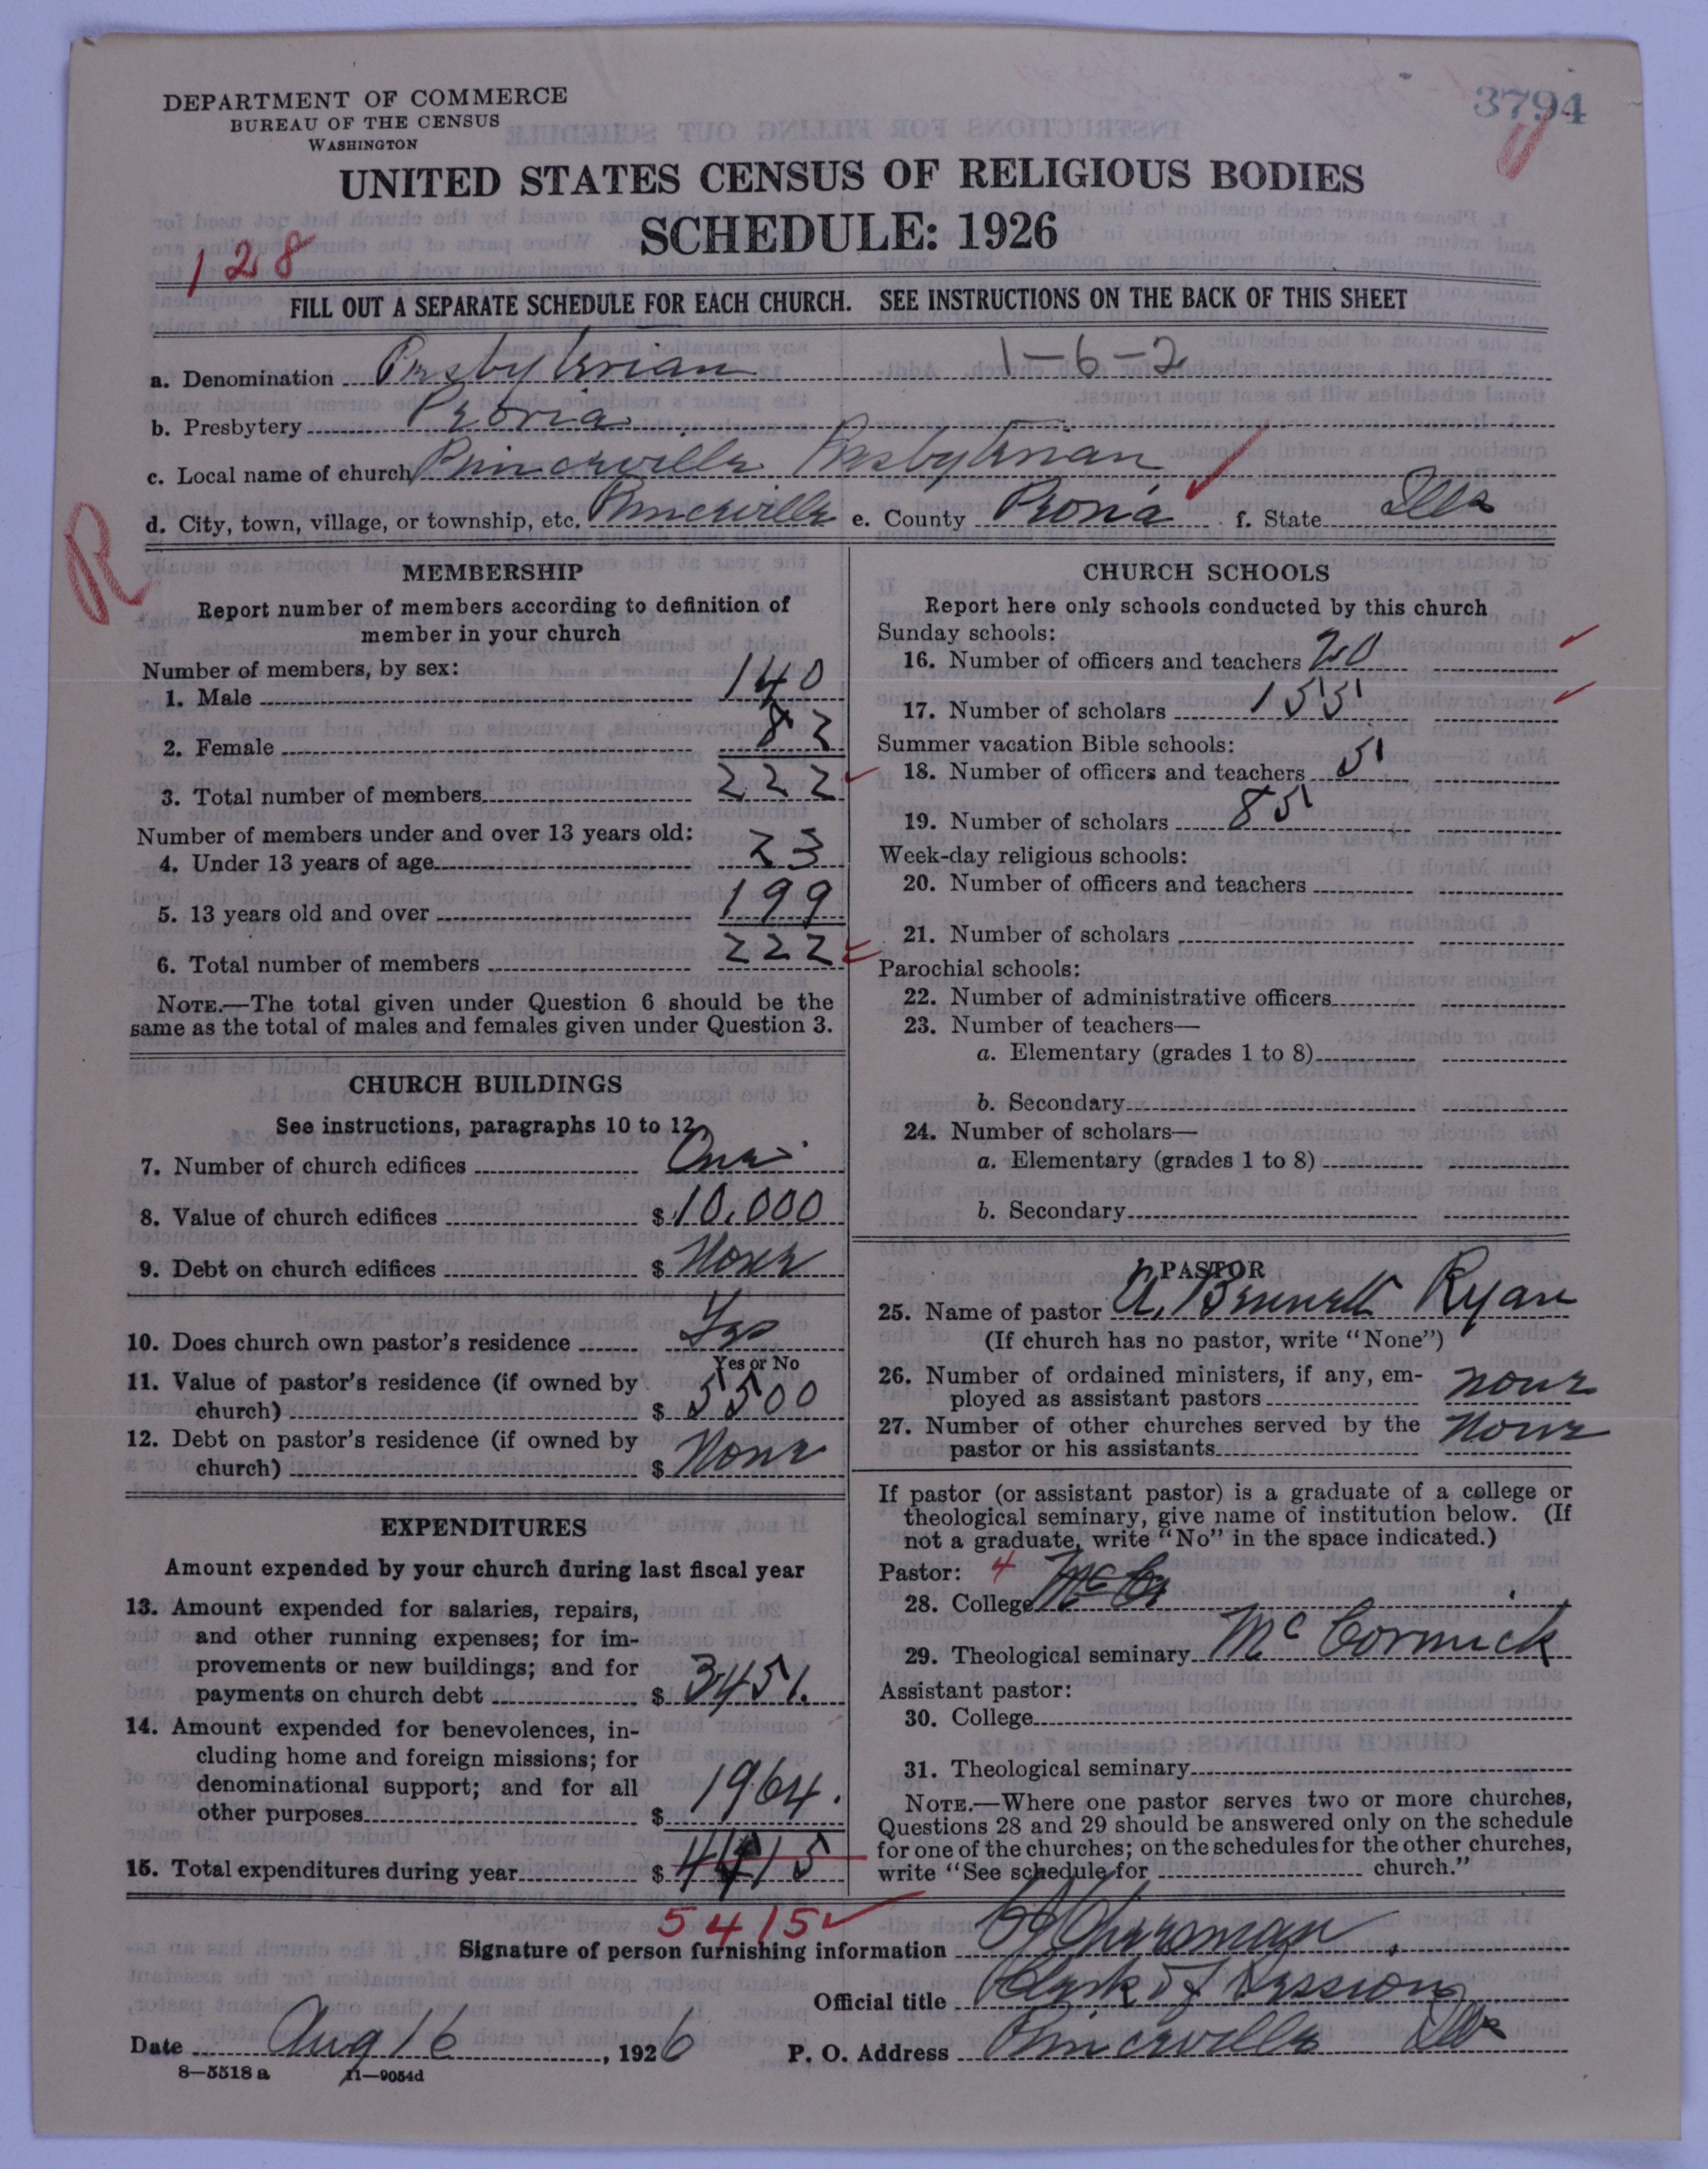 DEPARTMENT OF COMMERCE
BUREAU OF THE CENSUS
WASHINGTON
3794
UNITED STATES CENSUS OF RELIGIOUS BODIES
SCHEDULE: 1926
128
FILL OUT A SEPARATE SCHEDULE FOR EACH CHURCH. SEE INSTRUCTIONS ON THE BACK OF THIS SHEET
a. Denomination Presbyterian 1-6-2
b. Presbytery Peoria
c. Local name of church Princeville Presbyterian
d. City, town, village, or township, etc. Princeville e. County Peoria f. State Ills
R
MEMBERSHIP
Report number of members according to definition of
member in your church
Number of members, by sex:
1. Male 140
2. Female 82
3. Total number of members 222
Number of members under and over 13 years old:
4. Under 13 years of age 23
5. 13 years old and over 199
6. Total number of members 222
NOTE.—The total given under Question 6 should be the
same as the total of males and females given under Question 3.
CHURCH BUILDINGS
See instructions, paragraphs 10 to 12
7. Number of church edifices One
8. Value of church edifices $ 10,000
9. Debt on church edifices $ None
10. Does church own pastor's residence Yes
Yes or No
11. Value of pastor's residence (if owned by
church) $ 5500
12. Debt on pastor's residence (if owned by
church) $ None
EXPENDITURES
Amount expended by your church during last fiscal year
13. Amount expended for salaries, repairs,
and other running expenses; for im-
provements or new buildings; and for
payments on church debt $ 3451.
14. Amount expended for benevolences, in-
cluding home and foreign missions; for
denominational support; and for all
other purposes $ 1964.
15. Total expenditures during year $ 4415
5415
CHURCH SCHOOLS
Report here only schools conducted by this church
Sunday schools:
16. Number of officers and teachers 20
17. Number of scholars 155
Summer vacation Bible schools:
18. Number of officers and teachers 5
19. Number of scholars 85
Week-day religious schools:
20. Number of officers and teachers
21. Number of scholars
Parochial schools:
22. Number of administrative officers
23. Number of teachers—
a. Elementary (grades 1 to 8)
b. Secondary
24. Number of scholars—
a. Elementary (grades 1 to 8)
b. Secondary
PASTOR
25. Name of pastor A. Bennett Ryan
(If church has no pastor, write "None")
26. Number of ordained ministers, if any, em-
ployed as assistant pastors none
27. Number of other churches served by the
pastor or his assistants None
If pastor (or assistant pastor) is a graduate of a college or
theological seminary, give name of institution below. (If
not a graduate, write "No" in the space indicated.)
Pastor: 4
28. College Mc Co
29. Theological seminary Mc Cormick
Assistant pastor:
30. College
31. Theological seminary
NOTE.—Where one pastor serves two or more churches,
Questions 28 and 29 should be answered only on the schedule
for one of the churches; on the schedules for the other churches,
write "See schedule for church."
Signature of person furnishing information
Official title Clerk of Session
Date Aug 16, 1926 P. O. Address Princeville Ills
8—5518 a 11—9054d